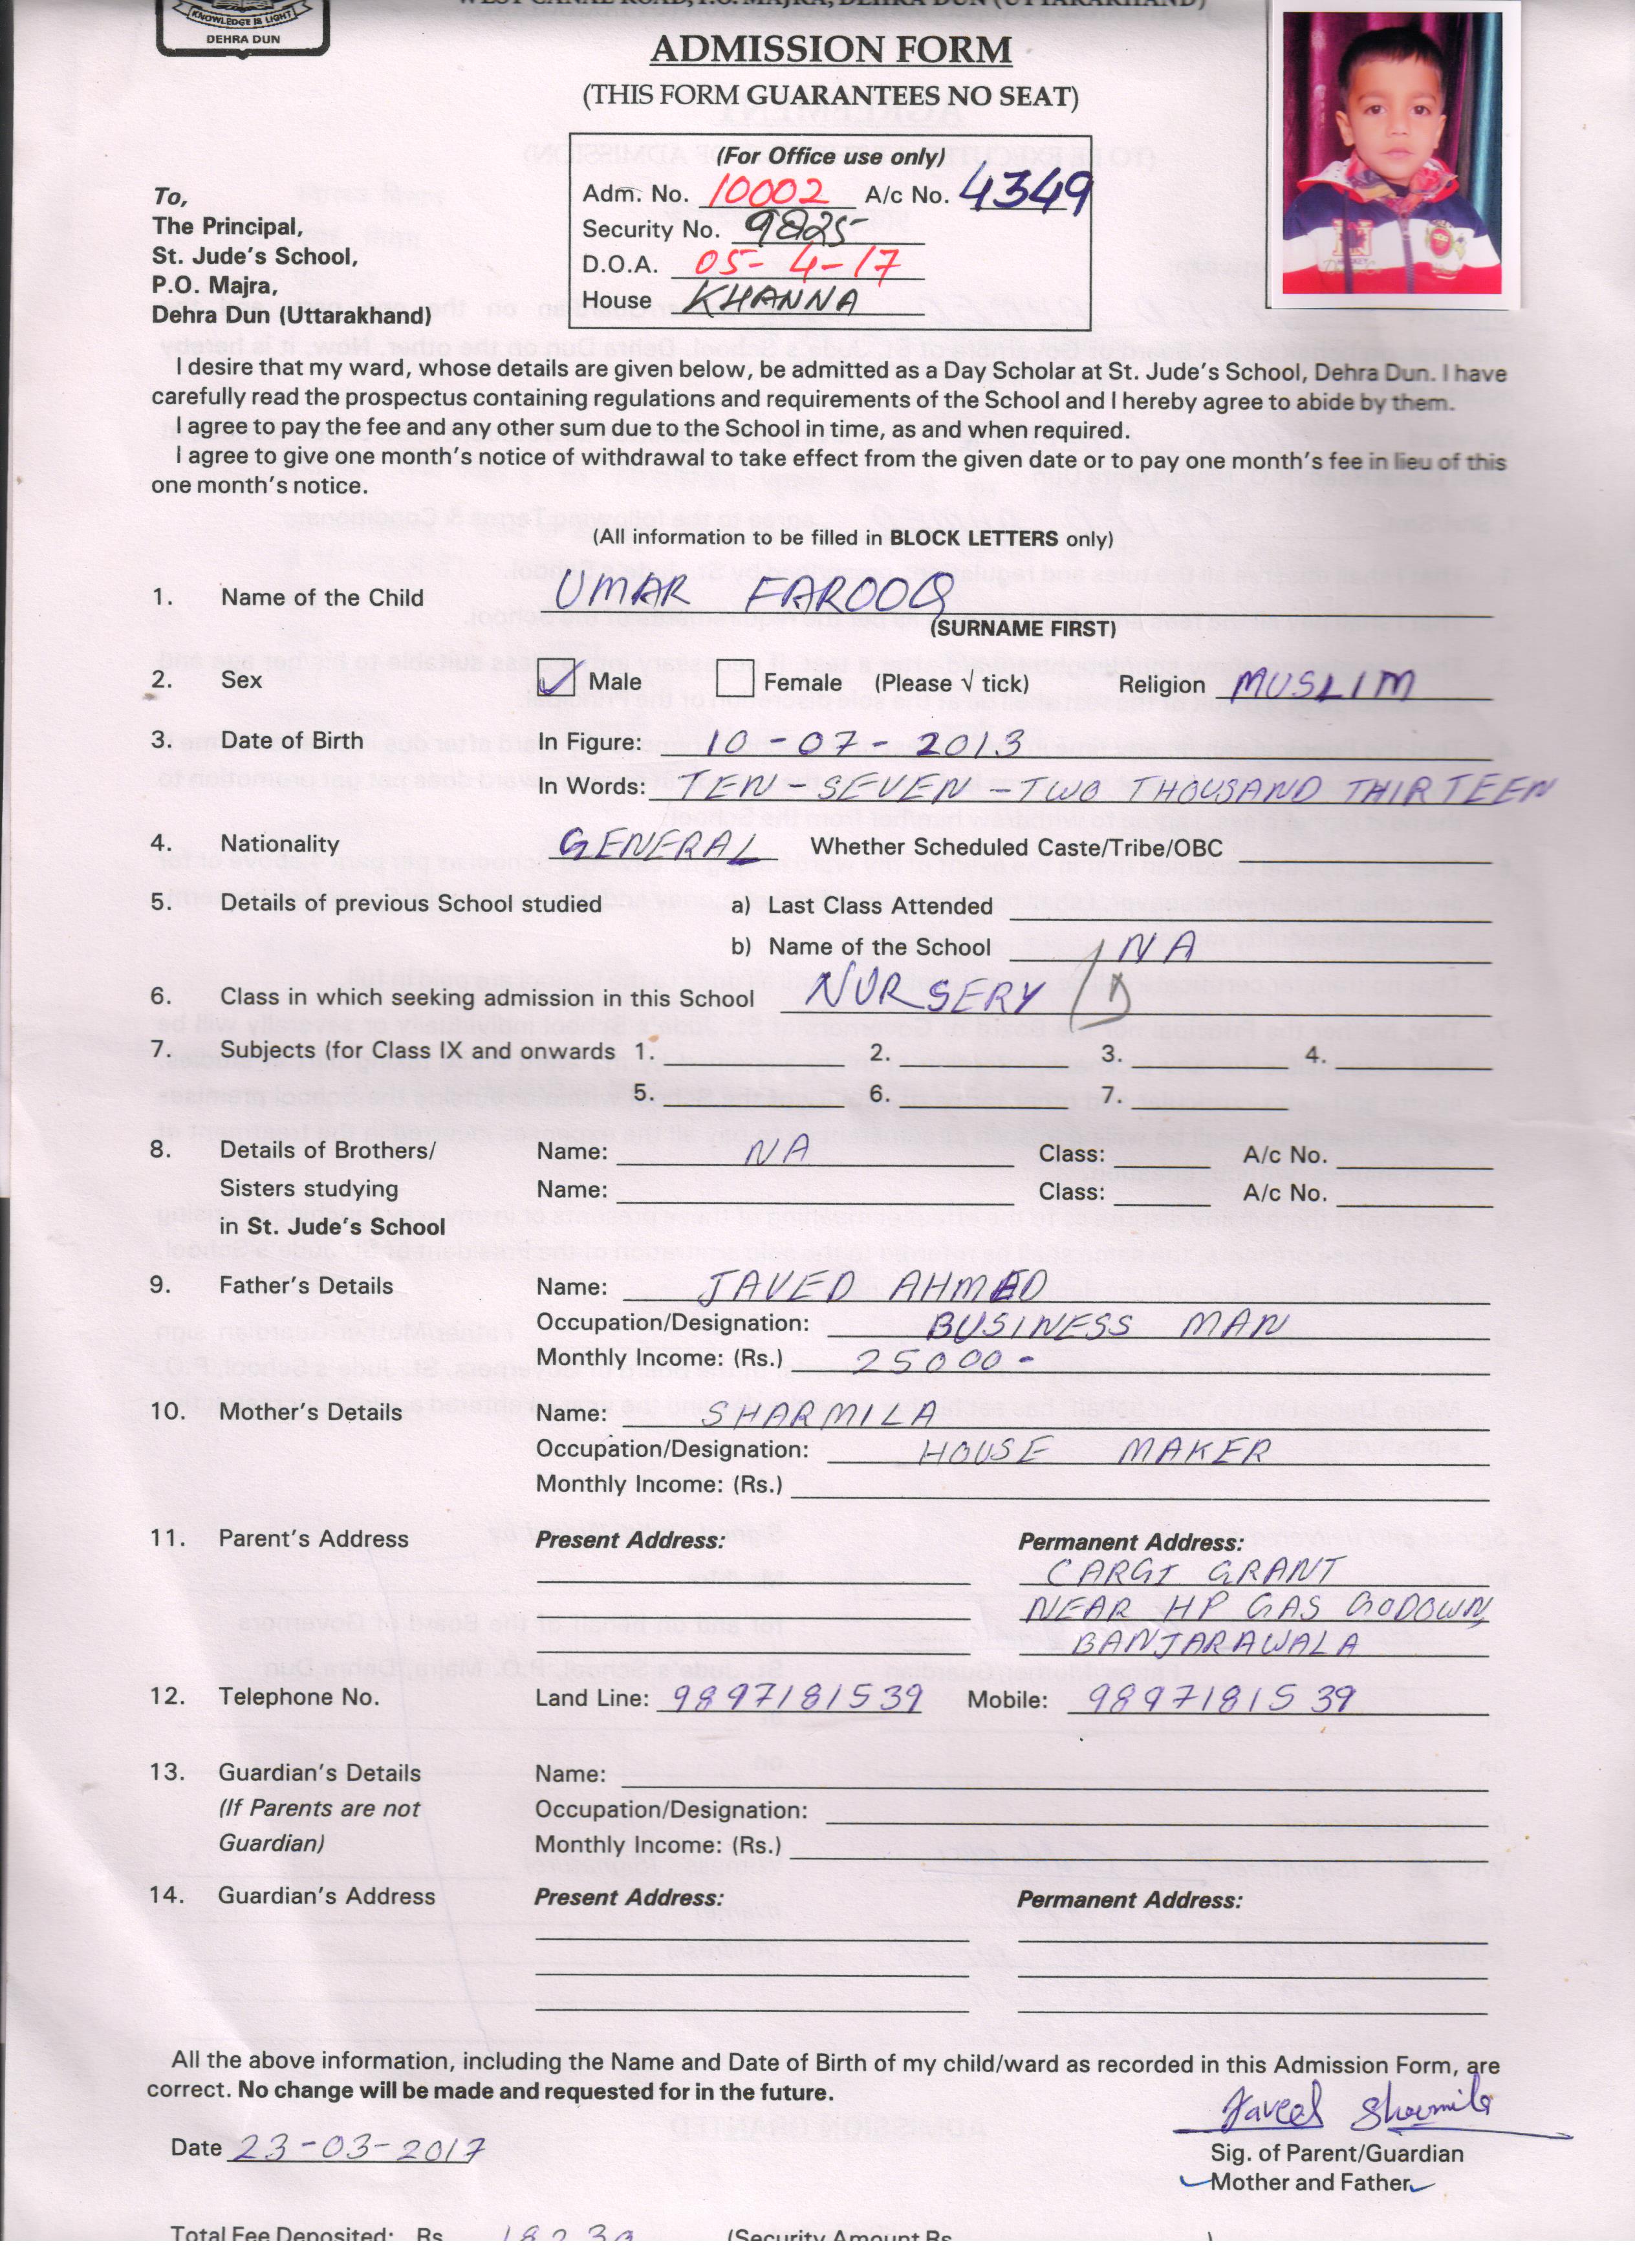 KNOWLEDGE IS LIGHT
DEHRA DUN
WEST CANAL ROAD, P.O. MAJRA, DEHRA DUN (UTTARAKHAND)
ADMISSION FORM
(THIS FORM GUARANTEES NO SEAT)
(For Office use only)
Adm. No. 10002 A/c No. 4349
Security No. 9825
D.O.A. 05-4-17
House KHANNA
To,
The Principal,
St. Jude's School,
P.O. Majra,
Dehra Dun (Uttarakhand)
I desire that my ward, whose details are given below, be admitted as a Day Scholar at St. Jude's School, Dehra Dun. I have
carefully read the prospectus containing regulations and requirements of the School and I hereby agree to abide by them.
I agree to pay the fee and any other sum due to the School in time, as and when required.
I agree to give one month's notice of withdrawal to take effect from the given date or to pay one month's fee in lieu of this
one month's notice.
(All information to be filled in BLOCK LETTERS only)
1. Name of the Child UMAR FAROOQ
(SURNAME FIRST)
2. Sex Male Female (Please √ tick) Religion MUSLIM
3. Date of Birth In Figure: 10-07-2013
In Words: TEN-SEVEN-TWO THOUSAND THIRTEEN
4. Nationality GENERAL Whether Scheduled Caste/Tribe/OBC
5. Details of previous School studied a) Last Class Attended
b) Name of the School NA
6. Class in which seeking admission in this School NURSERY / D
7. Subjects (for Class IX and onwards 1. 2. 3. 4.
5. 6. 7.
8. Details of Brothers/ Name: NA Class: A/c No.
Sisters studying Name: Class: A/c No.
in St. Jude's School
9. Father's Details Name: JAVED AHMED
Occupation/Designation: BUSINESS MAN
Monthly Income: (Rs.) 25000-
10. Mother's Details Name: SHARMILA
Occupation/Designation: HOUSE MAKER
Monthly Income: (Rs.)
11. Parent's Address Present Address: Permanent Address:
CARGI GRANT
NEAR HP GAS GODOWN,
BANJARAWALA
12. Telephone No. Land Line: 9897181539 Mobile: 9897181539
13. Guardian's Details Name:
(If Parents are not Occupation/Designation:
Guardian) Monthly Income: (Rs.)
14. Guardian's Address Present Address: Permanent Address:
All the above information, including the Name and Date of Birth of my child/ward as recorded in this Admission Form, are
correct. No change will be made and requested for in the future.
Javed Sharmila
Date 23-03-2017
Sig. of Parent/Guardian
Mother and Father
Total Fee Deposited: Rs. (Security Amount Rs. )